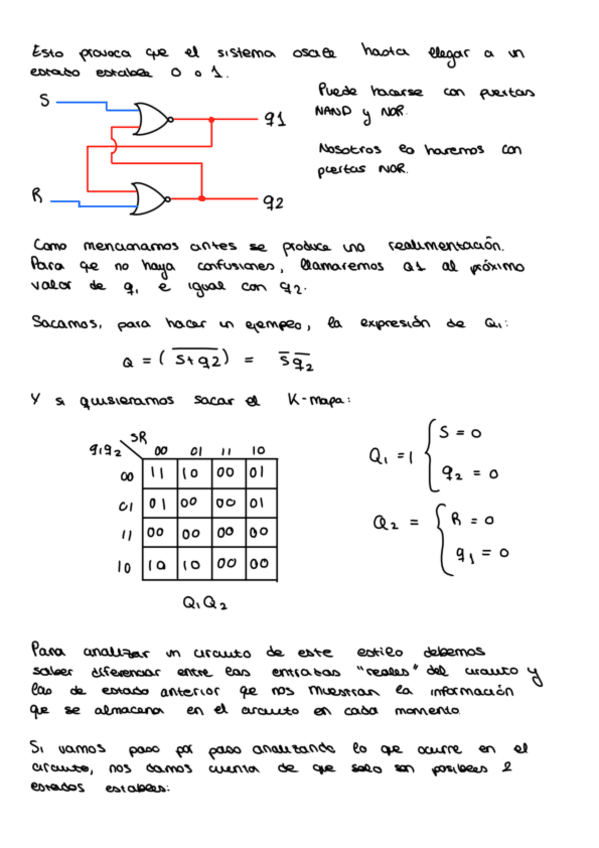 Esto provoca que el sistema oscile hasta llegar a un
estado estable 0 o 1.
S
q1
R
q2
Puede hacerse con puertas
NAND y NOR.
Nosotros lo haremos con
puertas NOR.
Como mencionamos antes se produce una realimentación.
Para qe no haya confusiones, llamaremos Q1 al próximo
valor de q1 e igual con q2.
Sacamos, para hacer un ejemplo, la expresión de Q1:
Q = ( \overline{S+q2} ) = \overline{S} \overline{q2}
Y si quisieramos sacar el K-mapa:
SR
q1q2 00 01 11 10
00 11 10 00 01
01 01 00 00 01
11 00 00 00 00
10 10 10 00 00
Q1Q2
Q1 = 1 { S = 0
q2 = 0
Q2 = { R = 0
q1 = 0
Para analizar un circuito de este estilo debemos
saber diferenciar entre las entratas "reales" del circuito y
las de estado anterior qe nos muestran la información
que se almacena en el circuito en cada momento.
Si vamos paso por paso analizando lo qe ocurre en el
circuito, nos damos cuenta de que solo son posibles 2
estados estables: